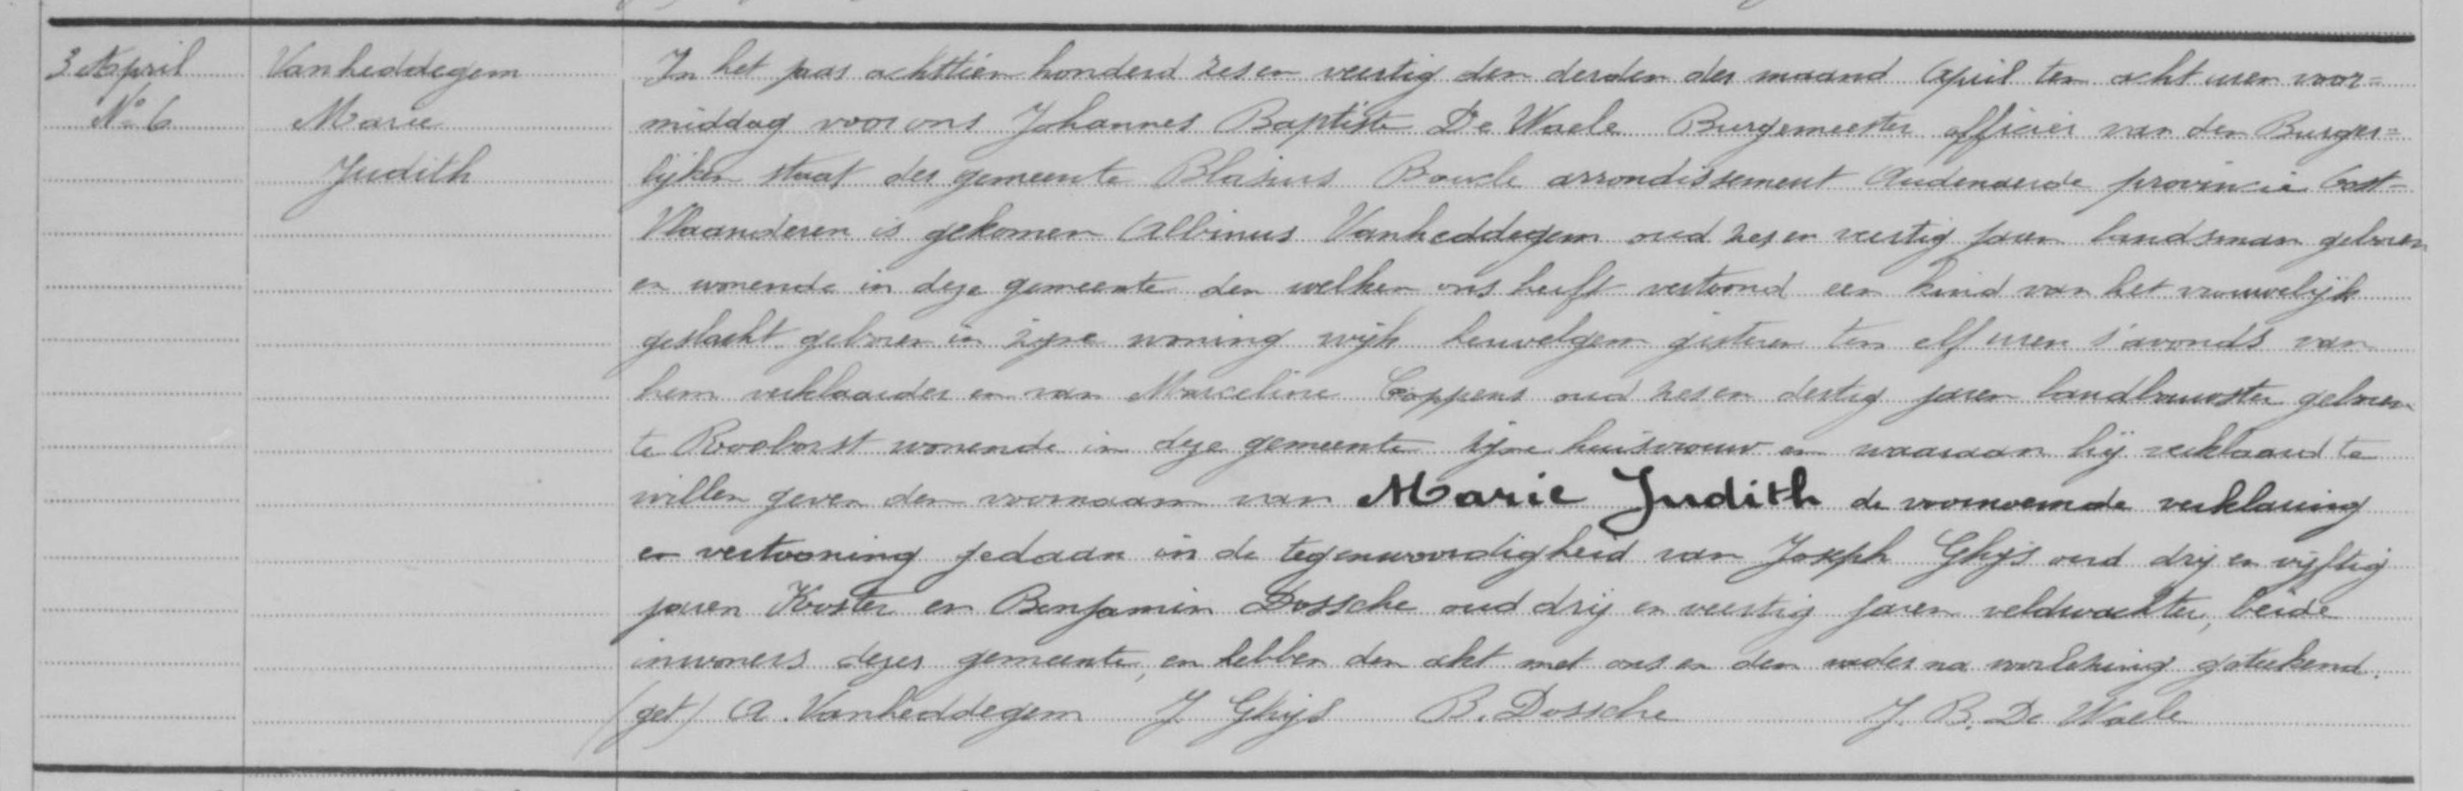 3 April
N° 6
Vanheddegem
Marie
Judith
In het jaar achttien honderd zes en veertig den derden der maand April ten acht uren voor=
middag voor ons Johannes Baptiste De Waele Burgemeester officier van den Burger=
lijken staat der gemeente Blasius Boucle arrondissement Audenaerde provincie Oost-
Vlaanderen is gekomen Albinus Vanheddegem oud zes en veertig jaren landsman geboren
en wonende in deze gemeente den welken ons heeft vertoond een kind van het vrouwelijk
geslacht geboren in zijne woning wijk gisteren ten elf uren s'avonds van
hem verklaarder en van Marceline Coppens oud zes en dertig jaren landbouwster geboren
te Rooborst wonende in deze gemeente zijne huisvrouw en waaraan hij verklaard te
willen geven den voornaam van Marie Judith de voornoemde verklaring
en vertooning gedaan in de tegenwoordigheid van Joseph Ghijs oud drij en vijftig
jaren Koster en Benjamin Dossche oud drij en veertig jaren veldwachter, beide
inwoners dezer gemeente, en hebben den akt met ons en den vader na voorlezing geteekend.
(get) A. Vanheddegem J. Ghijs B. Dossche J. B. De Waele